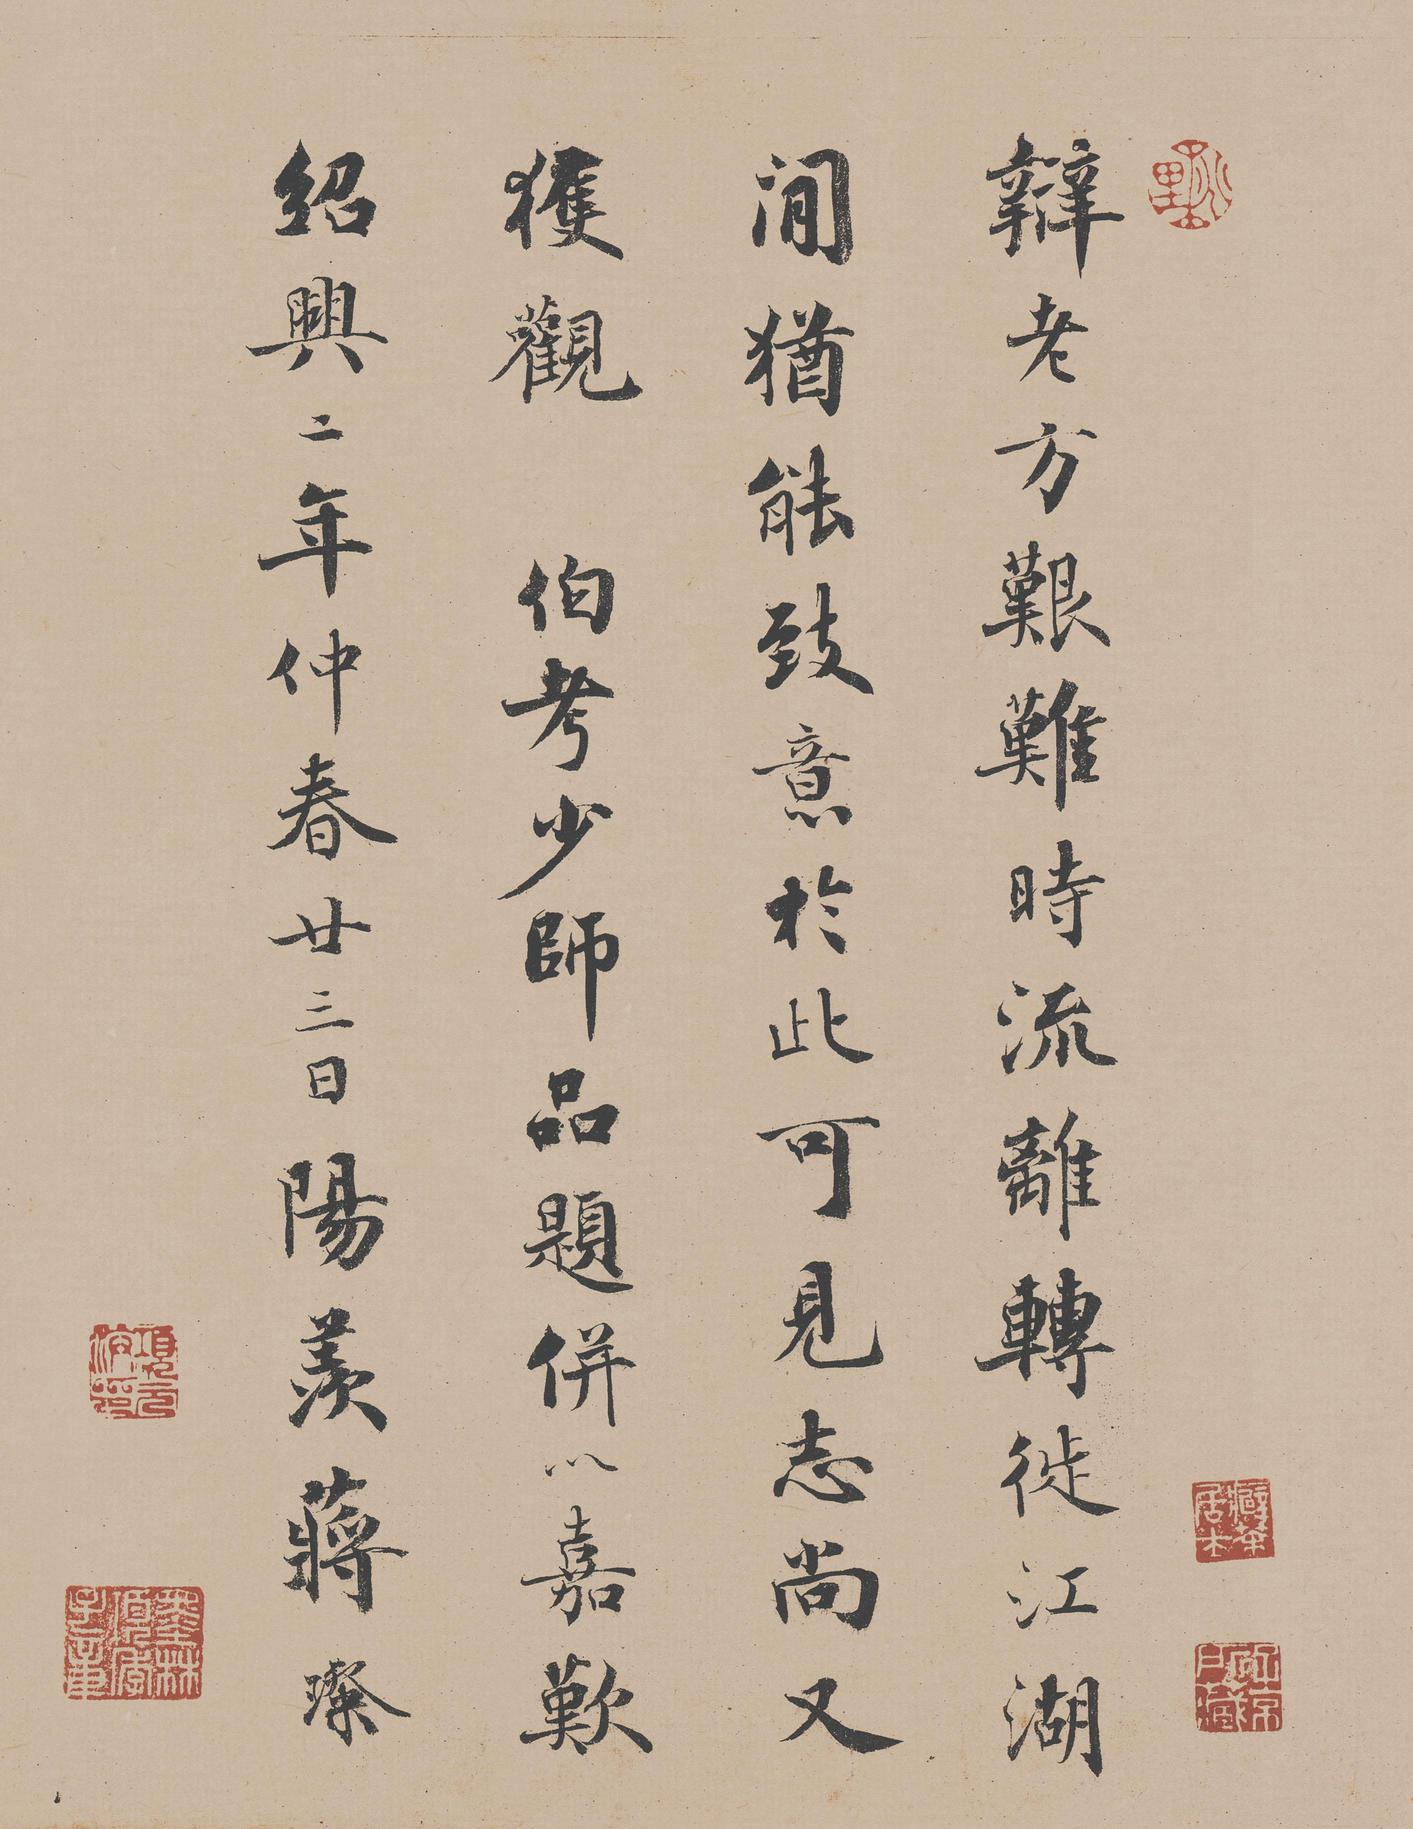 辯老方艱難時流離轉徙江湖
間猶能致意於此可見志尚又
獲觀 伯考少師品題併以嘉歎
紹興二年仲春廿三日陽羨蔣璨
項元汴印
墨林項季子章